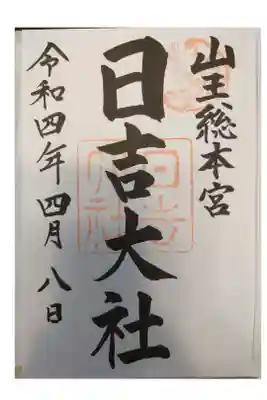 山王総本宮
日吉大社
令和四年四月八日